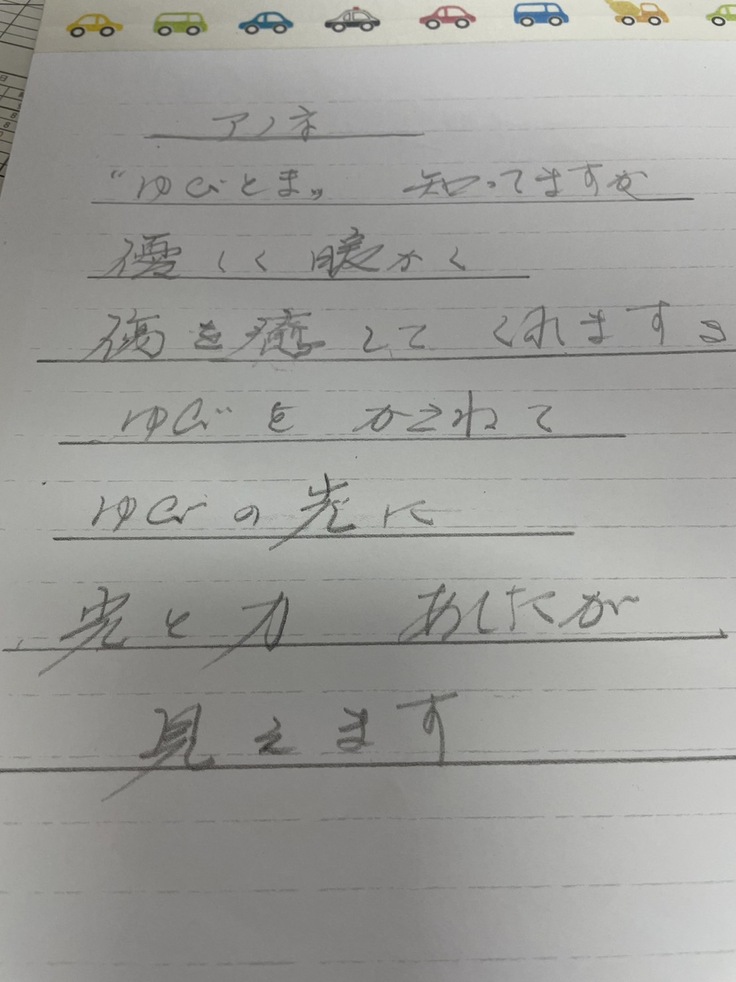 アノネ
“ゆびとま„ 知ってますか
優しく暖かく
傷を癒してくれますよ
ゆびをかさねて
ゆびの先に
光と力 あしたが
見えます